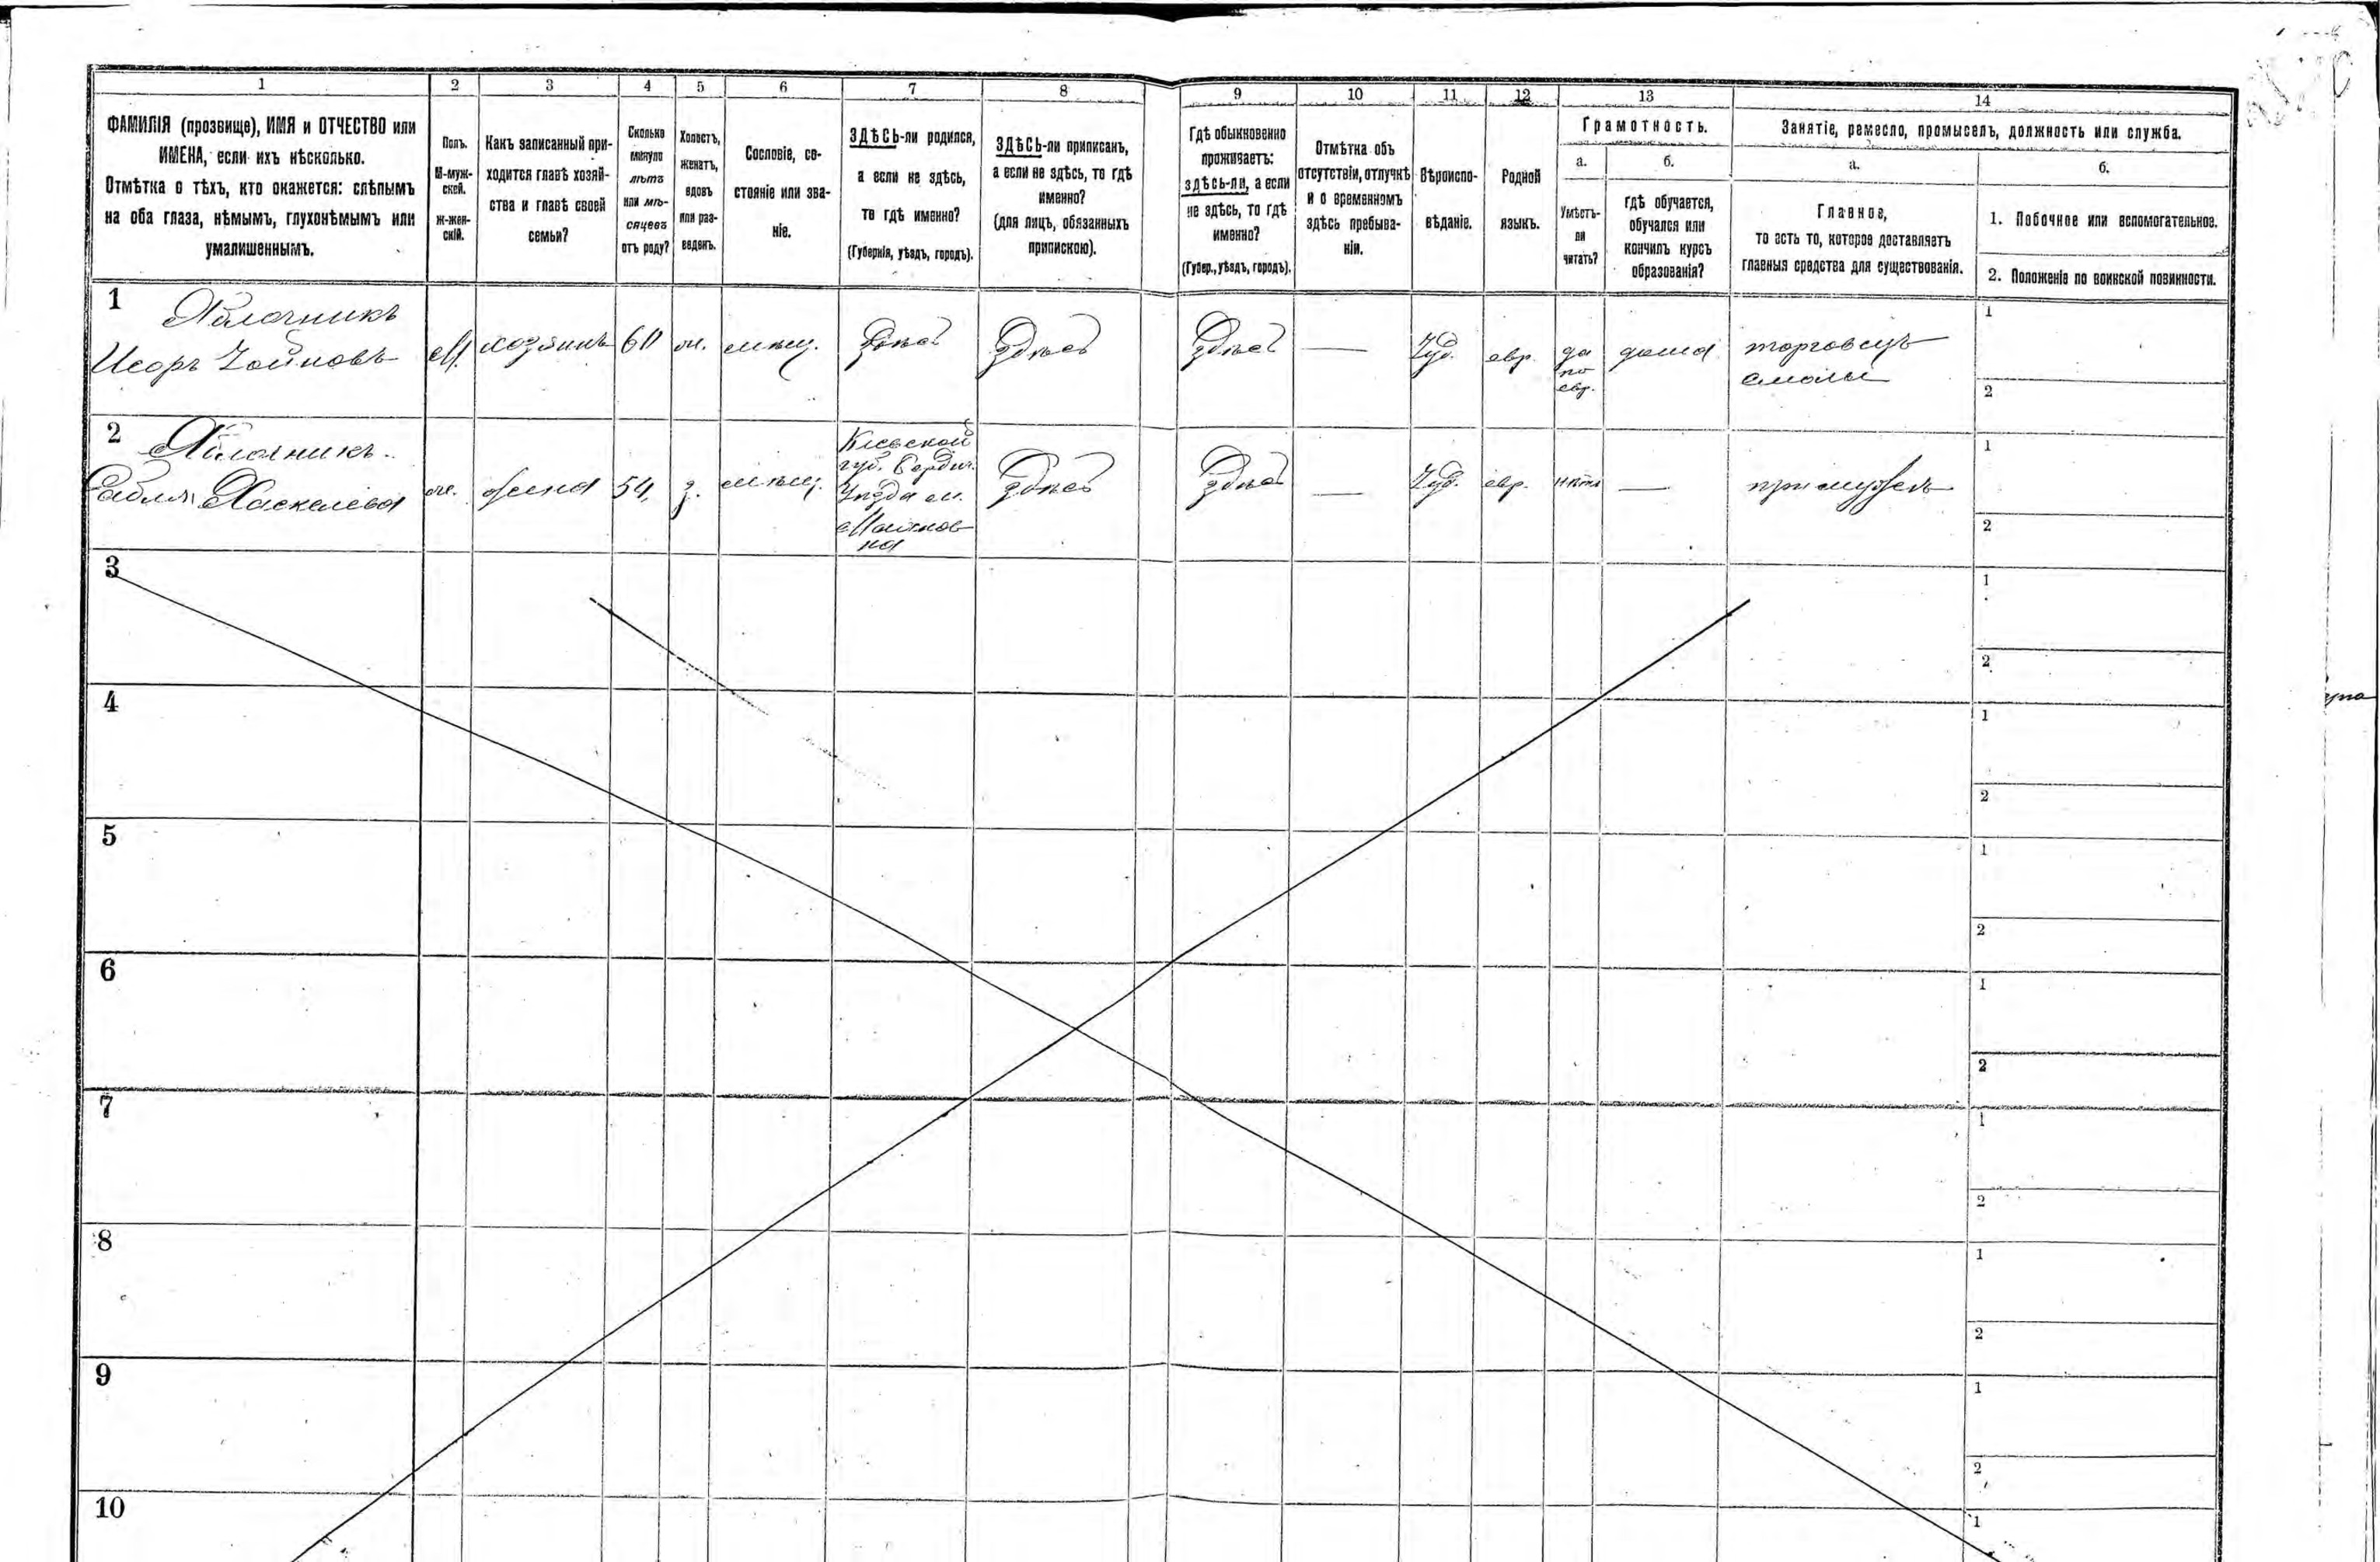 1 2 3 4 5 6 7 8 9 10 11 12 13 14
ФАМИЛІЯ (прозвище), ИМЯ и ОТЧЕСТВО или
ИМЕНА, если ихъ нѣсколько.
Отмѣтка о тѣхъ, кто окажется: слѣпымъ
на оба глаза, нѣмымъ, глухонѣмымъ или
умалишеннымъ.
Полъ.
М-муж-
ской.
Ж-жен-
скій.
Какъ записанный при-
ходится главѣ хозяй-
ства и главѣ своей
семьи?
Сколько
минуло
лѣтъ
или мѣ-
сяцевъ
отъ роду?
Холостъ,
женатъ,
вдовъ
или раз-
веденъ.
Сословіе, со-
стояніе или зва-
ніе.
ЗДѢСЬ-ли родился,
а если не здѣсь,
то гдѣ именно?
(Губернія, уѣздъ, городъ).
ЗДѢСЬ-ли приписанъ,
а если не здѣсь, то гдѣ
именно?
(для лицъ, обязанныхъ
припискою).
Гдѣ обыкновенно
проживаетъ:
здѣсь-ли, а если
не здѣсь, то гдѣ
именно?
(Губер., уѣздъ, городъ).
Отмѣтка объ
отсутствіи, отлучкѣ
и о временномъ
здѣсь пребыва-
ніи.
Вѣроиспо-
вѣданіе.
Родной
языкъ.
Грамотность.
а.
Умѣетъ-
ли
читать?
б.
гдѣ обучается,
обучался или
кончилъ курсъ
образованія?
Занятіе, ремесло, промыселъ, должность или служба.
а.
Главное,
то есть то, которое доставляетъ
главныя средства для существованія.
б.
1. Побочное или вспомогательное.
2. Положеніе по воинской повинности.
1
Яблочникъ
М. хозяинъ 60 ж. мѣщ. здѣсь здѣсь здѣсь — Іуд. евр. да
по
евр.
дома
торговецъ
смолы
1
2
2
Яблочникъ
ж. жена 54 з. мѣщ.
Кіевской
губ. Бердич.
Уѣзда м.
здѣсь здѣсь — Іуд. евр. нѣтъ — при мужѣ
1
2
3
1
2
4
1
2
5
1
2
6
1
2
7
1
2
8
1
2
9
1
2
10
1